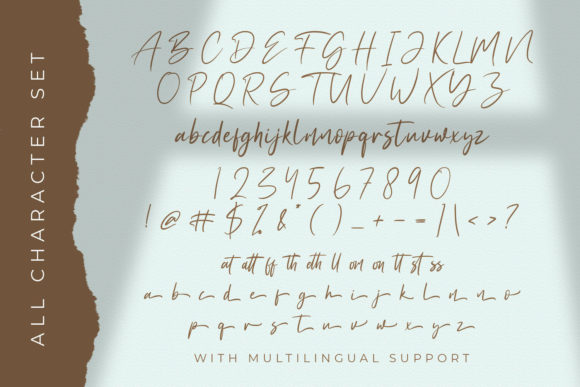 ALL CHARACTER SET
A B C D E F G H I J K L M N
O P Q R S T U V W X Y Z
abcdefghijklmnopqrstuvwxyz
1 2 3 4 5 6 7 8 9 0
! @ # $ % & * ( ) _ + - = ] | < > ?
at att ff th dh ll om on tt st ss
a b c d e f g h i j k l m n o
p q r s t u v w x y z
WITH MULTILINGUAL SUPPORT